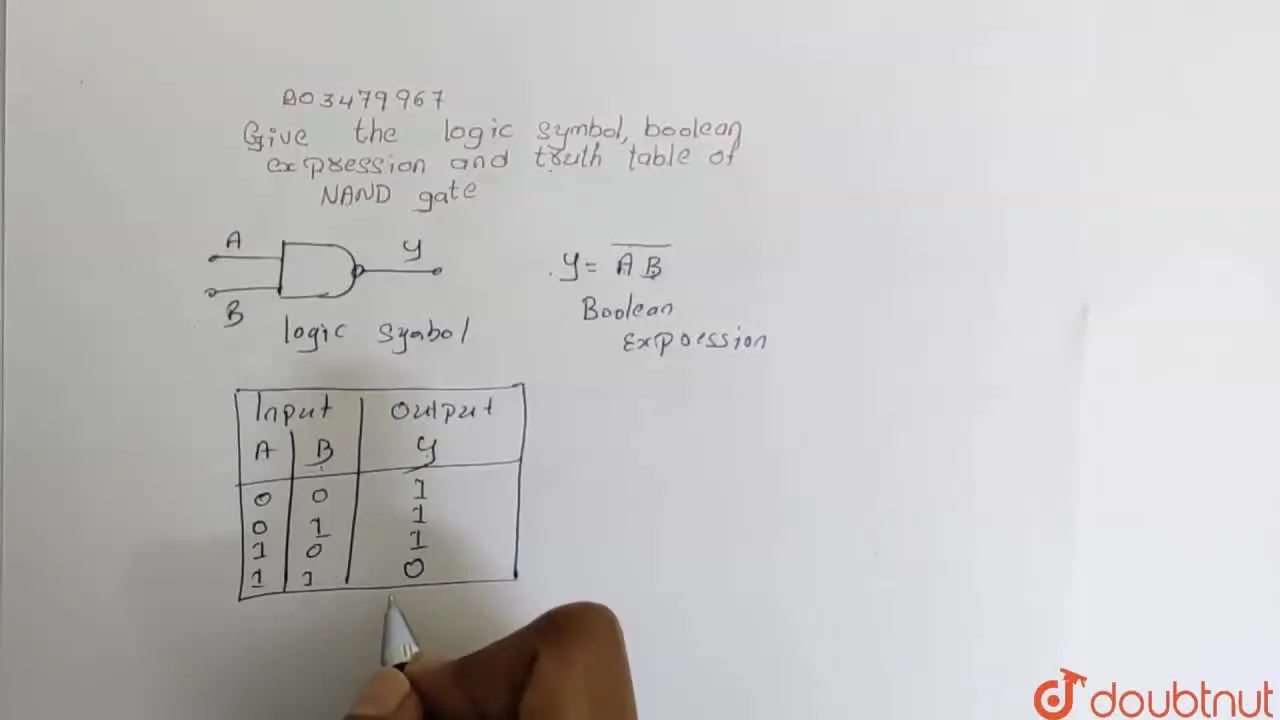 203479967
Give the logic symbol, boolean
expression and truth table of
NAND gate
A
B
Y
logic syabol
Y = \overline{A B}
Boolean
Expression
Input Output
A B Y
0 0 1
0 1 1
1 0 1
1 1 0
doubtnut